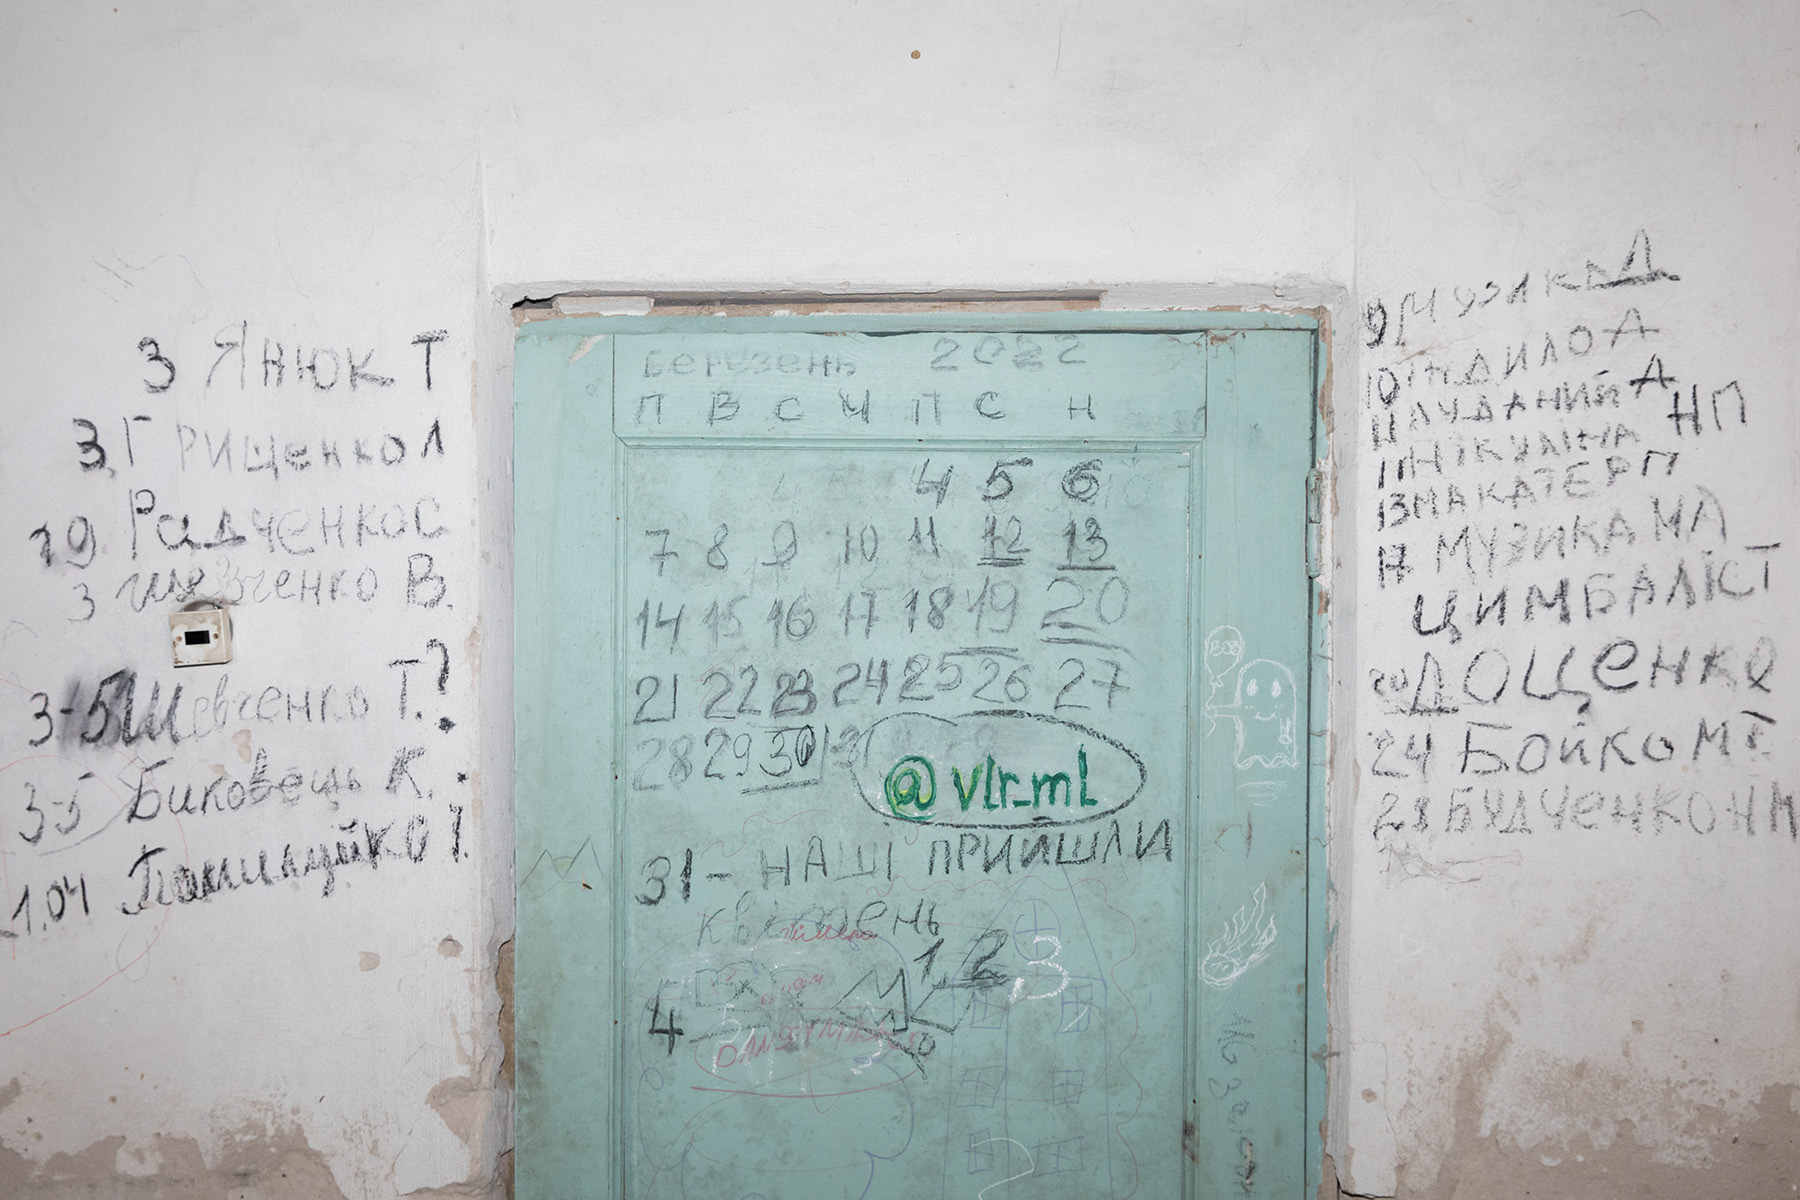 3 Янюк Т
3. Грищенко Л
19 Радченко С
3 Шевченко В.
3-5 Шевченко Т.?
3-5 Биковець К.
1.04
Березень 2022
П В С Ч П С Н
4 5 6
7 8 9 10 11 12 13
14 15 16 17 18 19 20
21 22 23 24 25 26 27
28 29 30 31
@vlr_ml
31 - НАШІ ПРИЙШЛИ
квітень
1, 2, 3
4
BOB
9 Музика Д
10 Індило А
11 Ауданий А
11 Нікуліна НП
13 Макатер П
17 Музика МА
Цимбаліст
20 Дощенко
24 Бойко М Г.
28 Будченко Н М